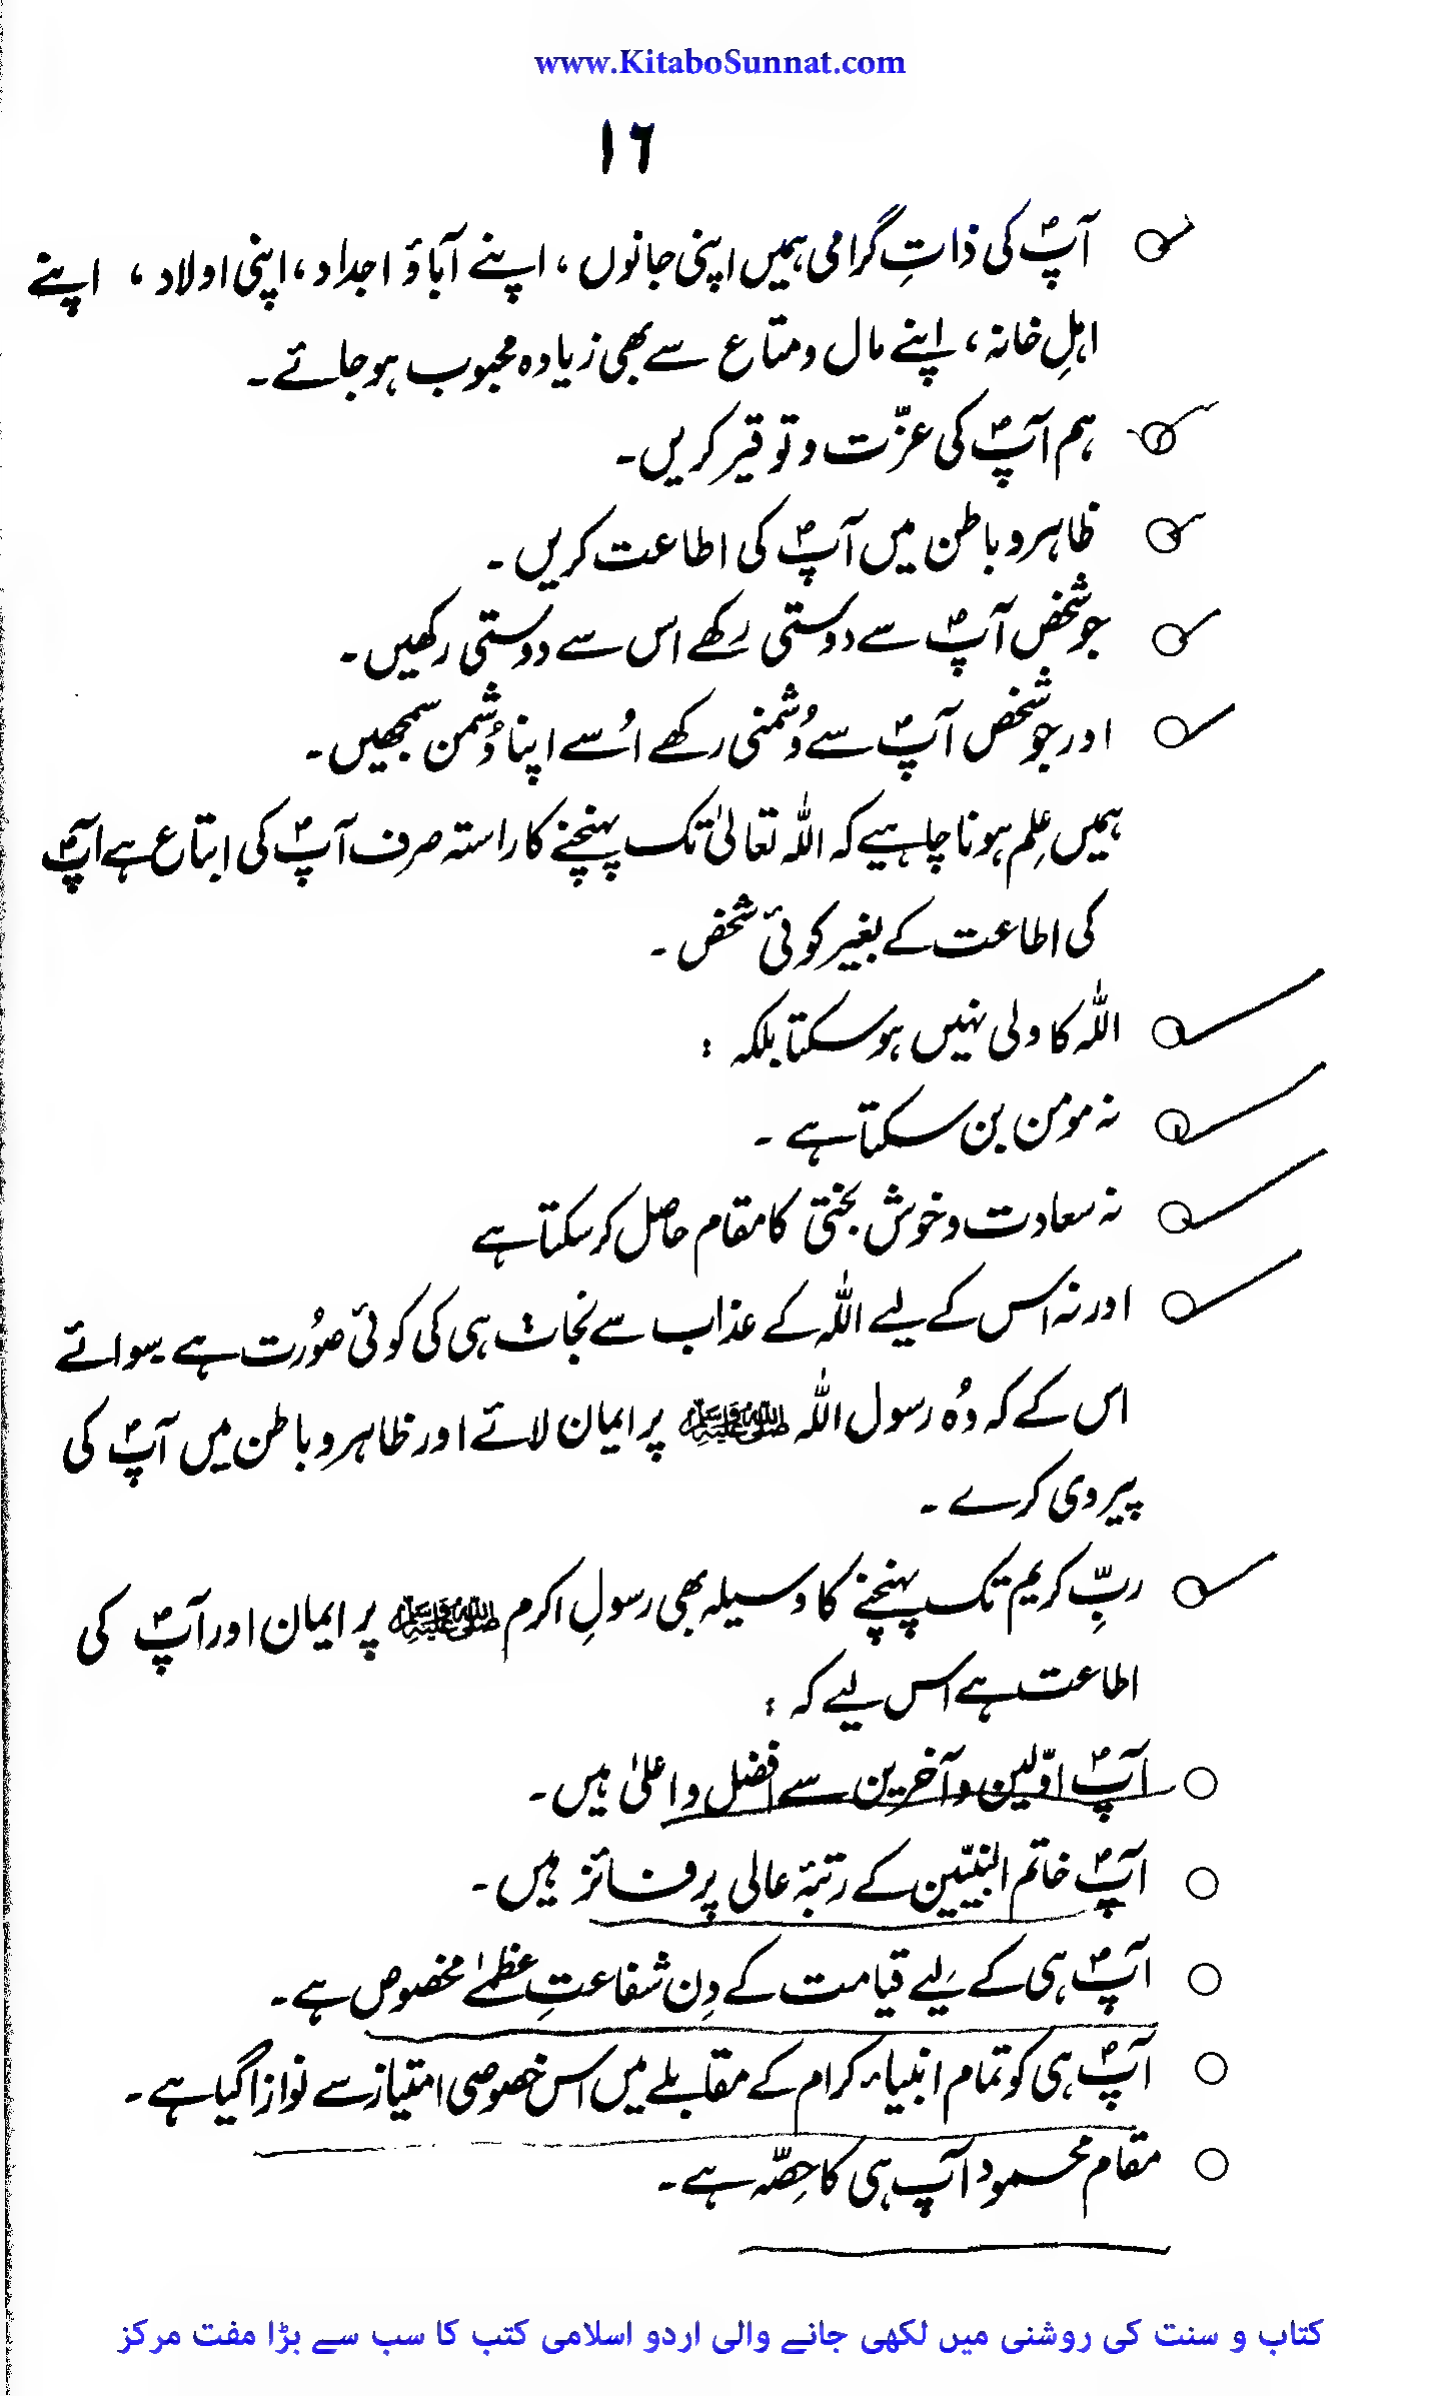 www.KitaboSunnat.com
۱۶
آپؐ کی ذاتِ گرامی ہمیں اپنی جانوں، اپنے آباؤ اجداد، اپنی اولاد، اپنے
اہلِ خانہ، اپنے مال ومتاع سے بھی زیادہ محبوب ہوجائے۔
ہم آپؐ کی عزّت وتوقیر کریں۔
ظاہر و باطن میں آپؐ کی اطاعت کریں۔
جو شخص آپؐ سے دوستی رکھے اس سے دوستی رکھیں۔
اور جو شخص آپؐ سے دُشمنی رکھے اُسے اپنا دُشمن سمجھیں۔
ہمیں عِلم ہونا چاہیے کہ اللہ تعالیٰ تک پہنچنے کا راستہ صرف آپؐ کی اتباع ہے آپؐ
کی اطاعت کے بغیر کوئی شخص۔
اللہ کا ولی نہیں ہوسکتا بلکہ :
نہ مومن بن سکتا ہے۔
نہ سعادت و خوش بختی کا مقام حاصل کرسکتا ہے
اور نہ اس کے لیے اللہ کے عذاب سے نجات ہی کی کوئی صُورت ہے سوائے
اس کے کہ وُہ رسول اللہ ﷺ پر ایمان لائے اور ظاہر و باطن میں آپؐ کی
پیروی کرے۔
ربِّ کریم تک پہنچنے کا وسیلہ بھی رسولِ اکرم ﷺ پر ایمان اور آپؐ کی
اطاعت ہے اس لیے کہ :
آپؐ اوّلین و آخرین سے افضل و اعلیٰ ہیں۔
آپؐ خاتم النبیّین کے رتبۂ عالی پر فائز ہیں۔
آپؐ ہی کے لیے قیامت کے دِن شفاعتِ عظمےٰ مخصوص ہے۔
آپؐ ہی کو تمام انبیاء کرام کے مقابلے میں اس خصوصی امتیاز سے نوازا گیا ہے۔
مقام محمود آپ ہی کا حِصّہ ہے۔
کتاب و سنت کی روشنی میں لکھی جانے والی اردو اسلامی کتب کا سب سے بڑا مفت مرکز